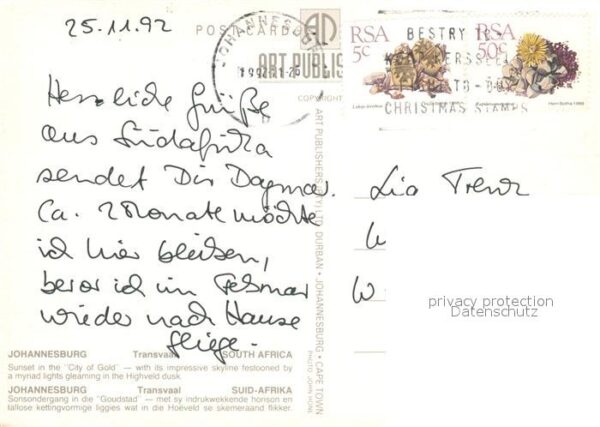 25.11.92
POSTCARD
JOHANNESBURG
1992-11-26
ART PUBLISH
COPYRIGHT
RSA
5c
RSA
50c
BESTRY T
KERSSEËL
CHRISTMAS STAMPS
Herzliche Grüße
aus Südafrika
sendet Dir Dagmar.
Ca. 2 Monate möchte
ich hier bleiben,
bevor ich im Februar
wieder nach Hause
fliege.
ART PUBLISHERS (PTY) LTD DURBAN • JOHANNESBURG • CAPE TOWN
PHOTO JOHN HONE
Lia
W
privacy protection
Datenschutz
JOHANNESBURG Transvaal SOUTH AFRICA
Sunset in the "City of Gold" — with its impressive skyline festooned by
a myriad lights gleaming in the Highveld dusk.
JOHANNESBURG Transvaal SUID-AFRIKA
Sonsondergang in die "Goudstad" — met sy indrukwekkende horison en
tallose kettingvormige liggies wat in die Hoëveld se skemeraand flikker.